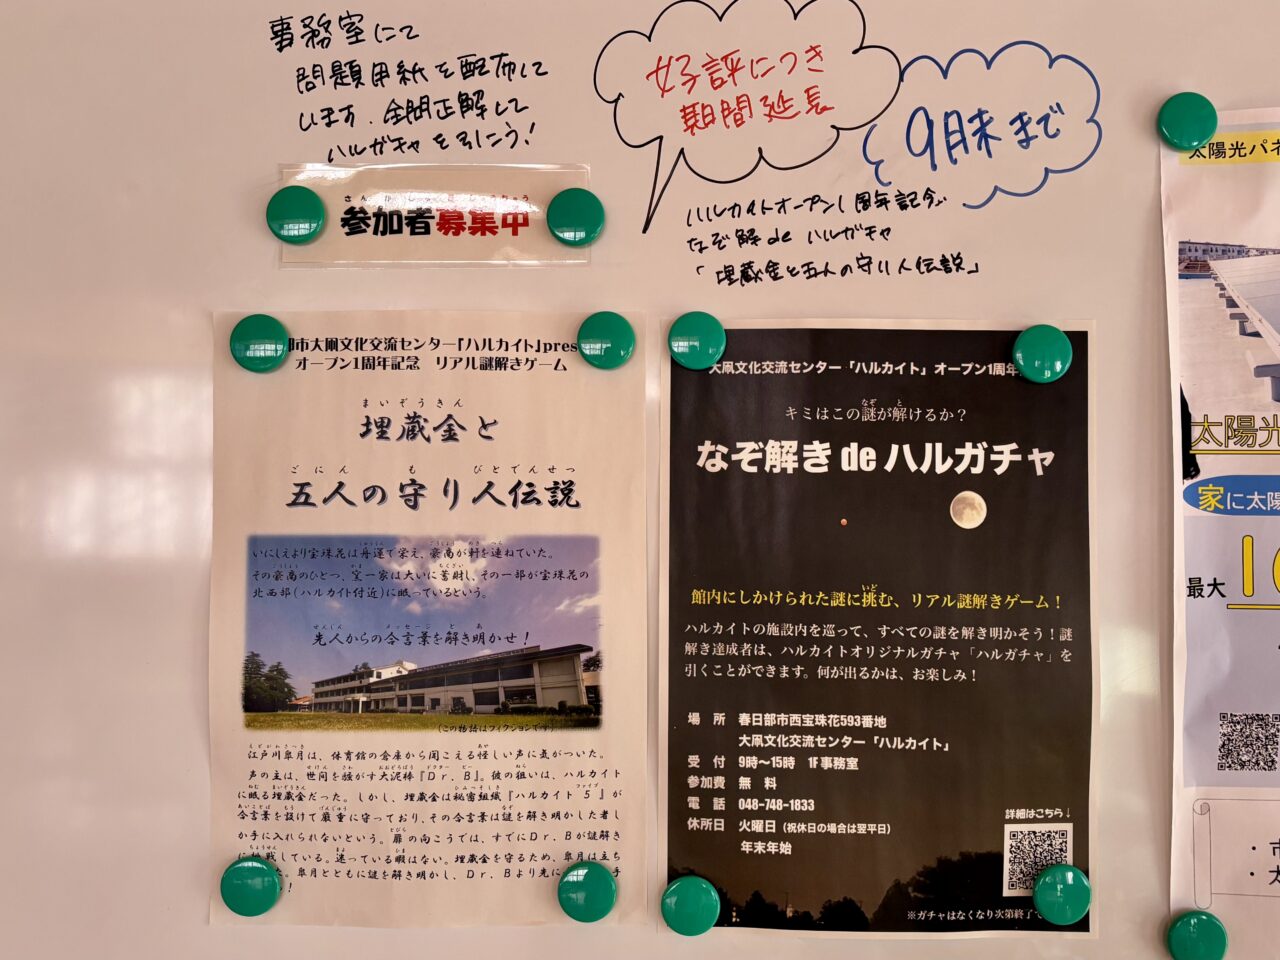 事務室にて
問題用紙を配布して
います。全問正解して
ハルガチャを引こう!
好評につき
期間延長
9月末まで
ハルカイトオープン1周年記念
なぞ解deハルガチャ
「埋蔵金と五人の守り人伝説」
参加者募集中
市大凧文化交流センター『ハルカイト』pres
オープン1周年記念 リアル謎解きゲーム
まいぞうきん
埋蔵金と
ごにん も びとでんせつ
五人の守り人伝説
いにしえより宝珠花は舟運で栄え、豪商が軒を連ねていた。
その豪商のひとつ、宝一家は大いに蓄財し、その一部が宝珠花の
北西部(ハルカイト付近)に眠っているという。
せんじん メッセージ と あ
先人からの合言葉を解き明かせ!
(この物語はフィクションです)
えどがわさつき あや
江戸川皐月は、体育館の倉庫から聞こえる怪しい声に気がついた。
せけん さわ おおどろぼう ドクター ビー ねら
声の主は、世間を騒がす大泥棒『Dr.B』。彼の狙いは、ハルカイト
ねむ まいぞうきん ひみつそしき ファイブ
に眠る埋蔵金だった。しかし、埋蔵金は秘密組織『ハルカイト5』が
あいことば もう げんじゅう なぞ
合言葉を設けて厳重に守っており、その合言葉は謎を解き明かした者し
とびら
か手に入れられないという。扉の向こうでは、すでにDr.Bが謎解き
ちょうせん まよ ひま
に挑戦している。迷っている暇はない。埋蔵金を守るため、皐月は立ち
た。皐月とともに謎を解き明かし、Dr.Bより先に 手
!
大凧文化交流センター「ハルカイト」オープン1周年
なぞ と
キミはこの謎が解けるか?
なぞ解き de ハルガチャ
いど
館内にしかけられた謎に挑む、リアル謎解きゲーム!
ハルカイトの施設内を巡って、すべての謎を解き明かそう!謎
解き達成者は、ハルカイトオリジナルガチャ「ハルガチャ」を
引くことができます。何が出るかは、お楽しみ!
場 所 春日部市西宝珠花593番地
大凧文化交流センター「ハルカイト」
受 付 9時〜15時 1F事務室
参加費 無 料
電 話 048-748-1833
休所日 火曜日(祝休日の場合は翌平日)
年末年始
詳細はこちら↓
※ガチャはなくなり次第終了で
太陽光パネ
太陽光
家に太陽
最大 1
・市
・太